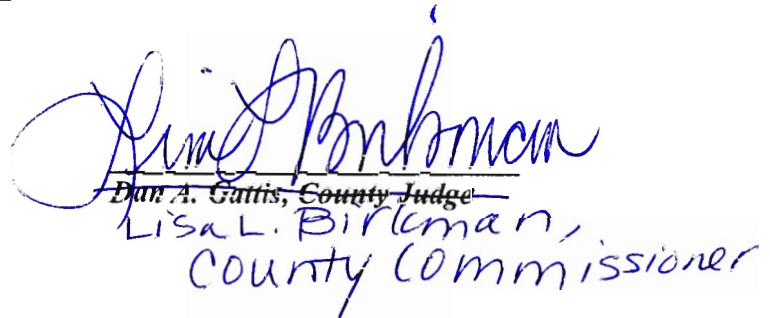 Lisa L. Birkman
Dan A. Gattis, County Judge
Lisa L. Birkman,
County Commissioner